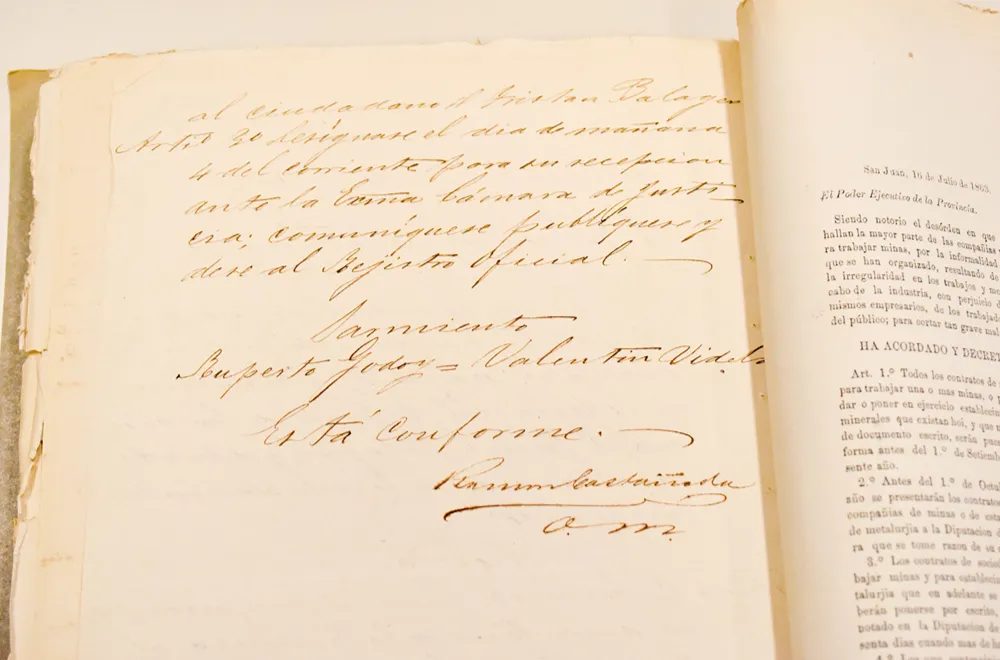 al ciudadano D Tristan Balagu
Artº 3º Desígnase el dia de mañana
4 del corriente para su recepcion
ante la Exma Cámara de Justi=
cia; comuníquese publíquese y
dese al Registro Oficial.
Sarmiento
Ruperto Godoy = Valentín Videla
Está conforme.
Ramon Castañeda
O. M.
San Juan, 16 de Julio de 1863.
El Poder Ejecutivo de la Provincia.
Siendo notorio el desórden en que
hallan la mayor parte de las compañías
ra trabajar minas, por la informalidad
que se han organizado, resultando de
la irregularidad en los trabajos y me
cabo de la industria, con perjuicio d
mismos empresarios, de los trabajad
del público; para cortar tan grave mal
HA ACORDADO Y DECRET
Art. 1.º Todos los contratos de
para trabajar una o mas minas, o
dar o poner en ejercicio establecim
minerales que existan hoi, y que n
de documento escrito, serán pues
forma antes del 1.º de Setiem
sente año.
2.º Antes del 1.º de Octu
año se presentarán los contratos
compañías de minas o de esta
de metalurjia a la Diputacion d
ra que se tome razon de su
3.º Los contratos de socied
bajar minas y para establecim
talurjia que en adelante se
berán ponerse por escrito,
notado en la Diputacion de
senta dias cuando mas de h